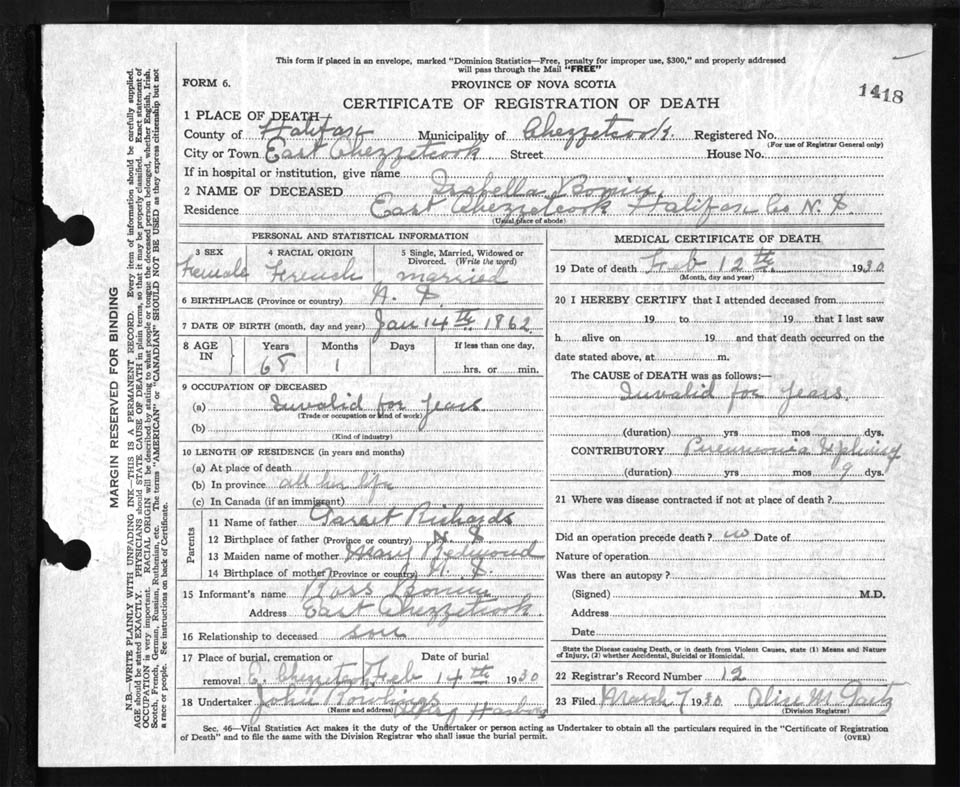 This form if placed in an envelope, marked "Dominion Statistics—Free, penalty for improper use, $300," and properly addressed
will pass through the Mail "FREE"
FORM 6.
PROVINCE OF NOVA SCOTIA
1418
CERTIFICATE OF REGISTRATION OF DEATH
1 PLACE OF DEATH
County of Halifax Municipality of Chezzetcook. Registered No.
(For use of Registrar General only)
City or Town East Chezzetcook Street House No.
If in hospital or institution, give name
2 NAME OF DECEASED Isabella
Residence East Chezzetcook Halifax Co N. S.
(Usual place of abode)
PERSONAL AND STATISTICAL INFORMATION
3 SEX 4 RACIAL ORIGIN 5 Single, Married, Widowed or
Divorced. (Write the word)
Female French married
6 BIRTHPLACE (Province or country) N. S.
7 DATE OF BIRTH (month, day and year) Jan 14th 1862
8 AGE IN Years Months Days If less than one day,
68 1 hrs. or min.
9 OCCUPATION OF DECEASED
(a) Invalid for years
(Trade or occupation or kind of work)
(b)
(Kind of industry)
10 LENGTH OF RESIDENCE (in years and months)
(a) At place of death
(b) In province all her life
(c) In Canada (if an immigrant)
Parents
11 Name of father Garret Richards
12 Birthplace of father (Province or country) N. S
13 Maiden name of mother Mary Redmond
14 Birthplace of mother (Province or country) N. S.
15 Informant's name Ross
Address East Chezzetcook.
16 Relationship to deceased son
17 Place of burial, cremation or Date of burial
removal E. Chezzetcook Feb 14th 1930
18 Undertaker John Rowlings
(Name and address) Harbour
MEDICAL CERTIFICATE OF DEATH
19 Date of death Feb 12th. 1930
(Month, day and year)
20 I HEREBY CERTIFY that I attended deceased from
19 to 19 that I last saw
h alive on 19 and that death occurred on the
date stated above, at m.
The CAUSE of DEATH was as follows:—
Invalid for years.
(duration) yrs mos dys.
CONTRIBUTORY Pneumonia
(duration) yrs mos 9 dys.
21 Where was disease contracted if not at place of death?
Did an operation precede death? no Date of
Nature of operation
Was there an autopsy?
(Signed) M.D.
Address
Date
State the Disease causing Death, or in death from Violent Causes, state (1) Means and Nature
of Injury, (2) whether Accidental, Suicidal or Homicidal.
22 Registrar's Record Number 12
23 Filed March 7 1930 Alice M.
(Division Registrar)
Sec. 46—Vital Statistics Act makes it the duty of the Undertaker or person acting as Undertaker to obtain all the particulars required in the "Certificate of Registration
of Death" and to file the same with the Division Registrar who shall issue the burial permit.
(OVER)
MARGIN RESERVED FOR BINDING
N.B.—WRITE PLAINLY WITH UNFADING INK—THIS IS A PERMANENT RECORD. Every item of information should be carefully supplied.
AGE should be stated EXACTLY. PHYSICIANS should STATE CAUSE OF DEATH in plain terms, so that it may be properly classified. Exact statement of
OCCUPATION is very important. RACIAL ORIGIN will be described by stating to what people or tongue the deceased person belonged, whether English, Irish,
Scotch, French, German, Russian, Ruthenian, etc. The terms "AMERICAN" or "CANADIAN" SHOULD NOT BE USED as they express citizenship but not
a race or people. See instructions on back of Certificate.